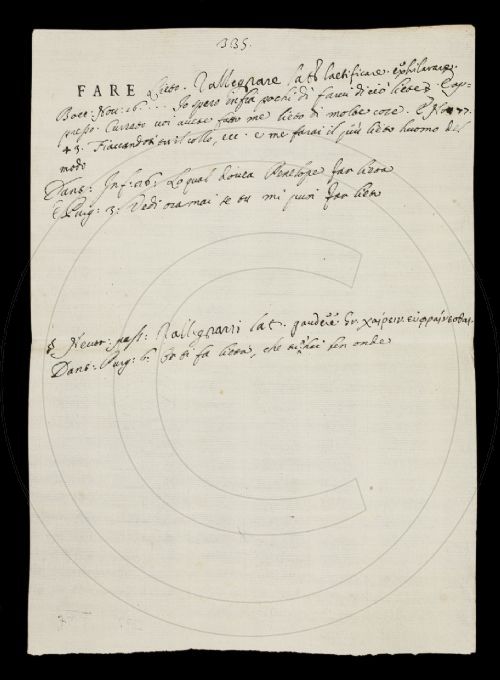 335.
FARE Lieto. Rallegrare lat. laetificare. exhilarare.
Bocc: Nov: 16. . . . Io spero infra pochi dì farvi di ciò lieto. E ap-
presso. Currado voi avete fatto me lieto di molte cose. E Nov: 77.
43. Fiaccandoti tu il collo, ecc. e me farai il più lieto huomo del
mondo
Dant: Inf: 26. Lo qual dovea Penelope far lieta
E Purg: 3. Vedi oramai se tu mi puoi far lieto
§ Neutr: pass: Rallegrarsi lat. gaudere gr. χαίρειν. εὐφραίνεσθαι.
Dant: Purg: 6. Or ti fa lieta, che tu hai ben onde